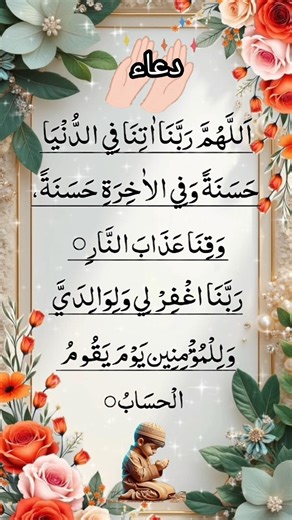 دعاء
اَللّٰهُمَّ رَبَّنَا اٰتِنَا فِي الدُّنْيَا
حَسَنَةً وَفِي الْاٰخِرَةِ حَسَنَةً،
وَقِنَا عَذَابَ النَّارِ○
رَبَّنَا اغْفِرْ لِي وَلِوَالِدَيَّ
وَلِلْمُؤْمِنِين يَوْمَ يَقُومُ
الْحسَابُ○